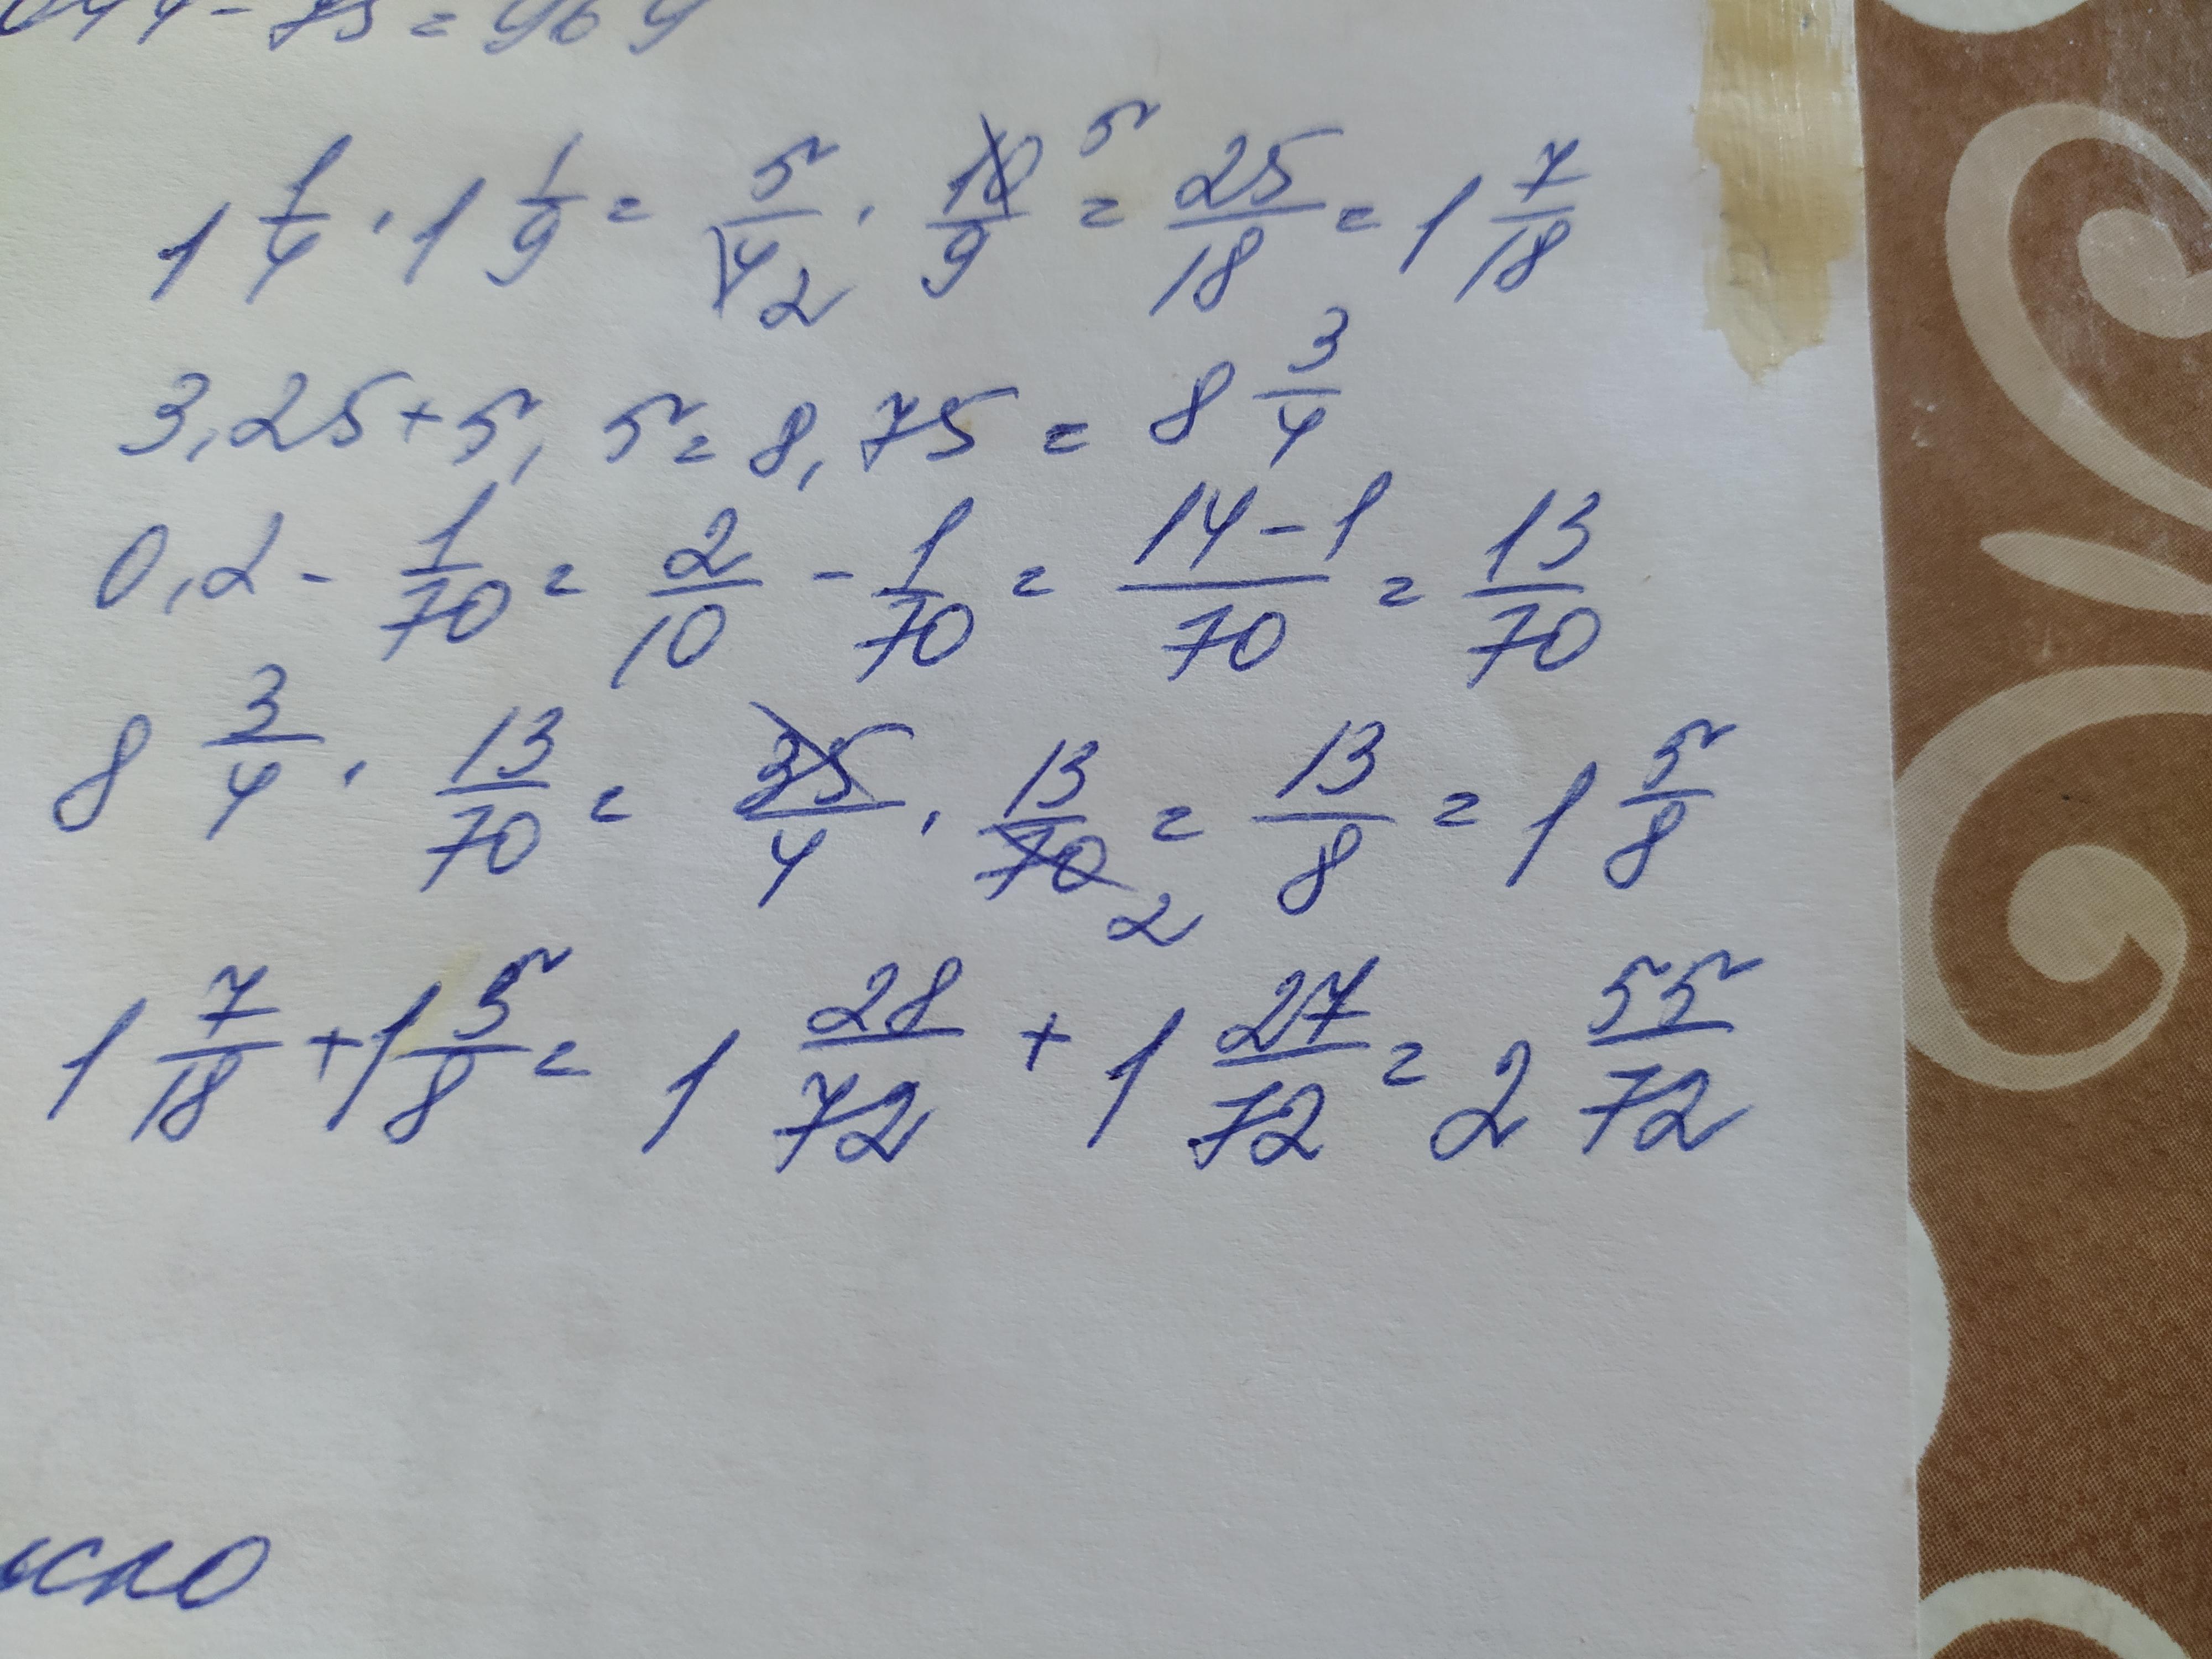 - 75 = 964
1 1/4 · 1 1/9 = 5/4 2 · 10/9 5 = 25/18 = 1 7/18
3,25 + 5,5 = 8,75 = 8 3/4
0,2 - 1/70 = 2/10 - 1/70 = 14-1/70 = 13/70
8 3/4 · 13/70 = 35/4 · 13/70 2 = 13/8 = 1 5/8
1 7/18 + 1 5/8 = 1 28/72 + 1 27/72 = 2 55/72